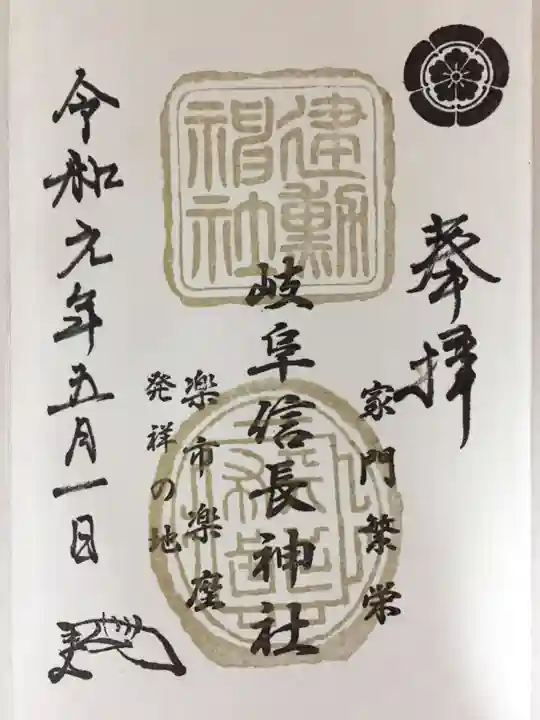 奉拝
家門繁栄
建勲
神社
岐阜信長神社
楽市楽座
発祥の地
令和元年五月一日